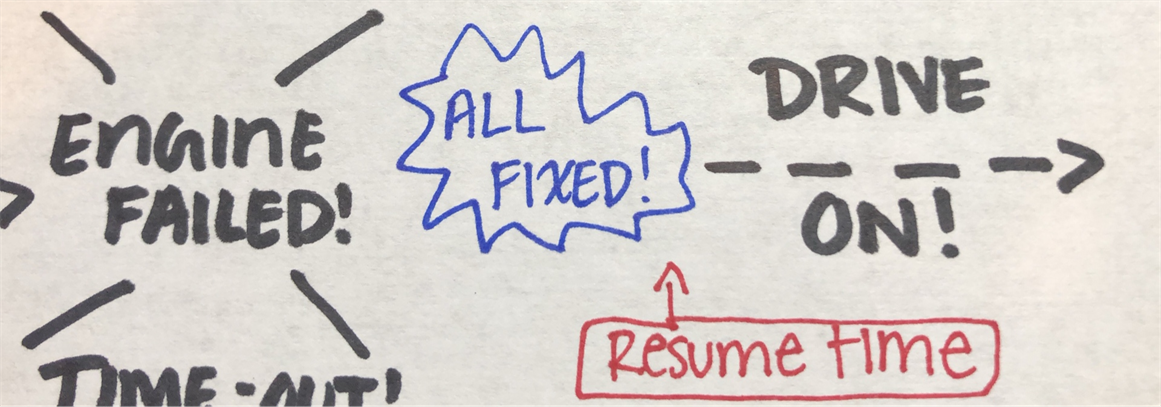 ENGINE
FAILED!
TIME-OUT!
ALL
FIXED!
DRIVE
ON!
Resume time